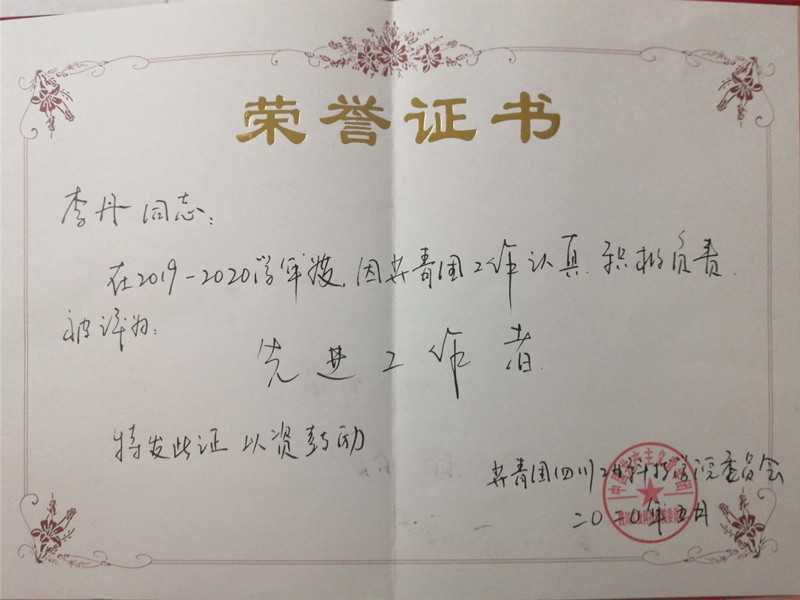 荣誉证书
李丹同志：
在2019-2020学年度，因共青团工作认真、积极负责，
被评为：
先进工作者
特发此证 以资鼓励
共青团四川工业科技学院委员会
二〇二〇年五月